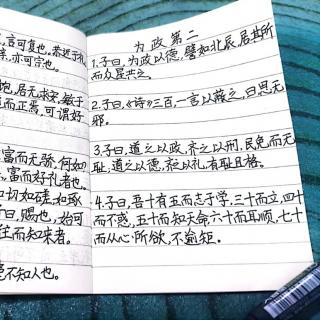 言可复也。恭近于礼
亦可宗也。
饱，居无求安，敏于
正焉，可谓好
富而无骄，何如
富而好礼者也。
如切如磋，如琢
曰，赐也，始可
往而知来者。
不知人也。
为政第二
1.子曰，为政以德，譬如北辰，居其所
而众星共之。
2.子曰，《诗》三百，一言以蔽之，曰思无
邪。
3.子曰，道之以政，齐之以刑，民免而无
耻，道之以德，齐之以礼，有耻且格。
4.子曰，吾十有五而志于学，三十而立，四十
而不惑，五十而知天命六十而耳顺，七十
而从心所欲，不逾矩。